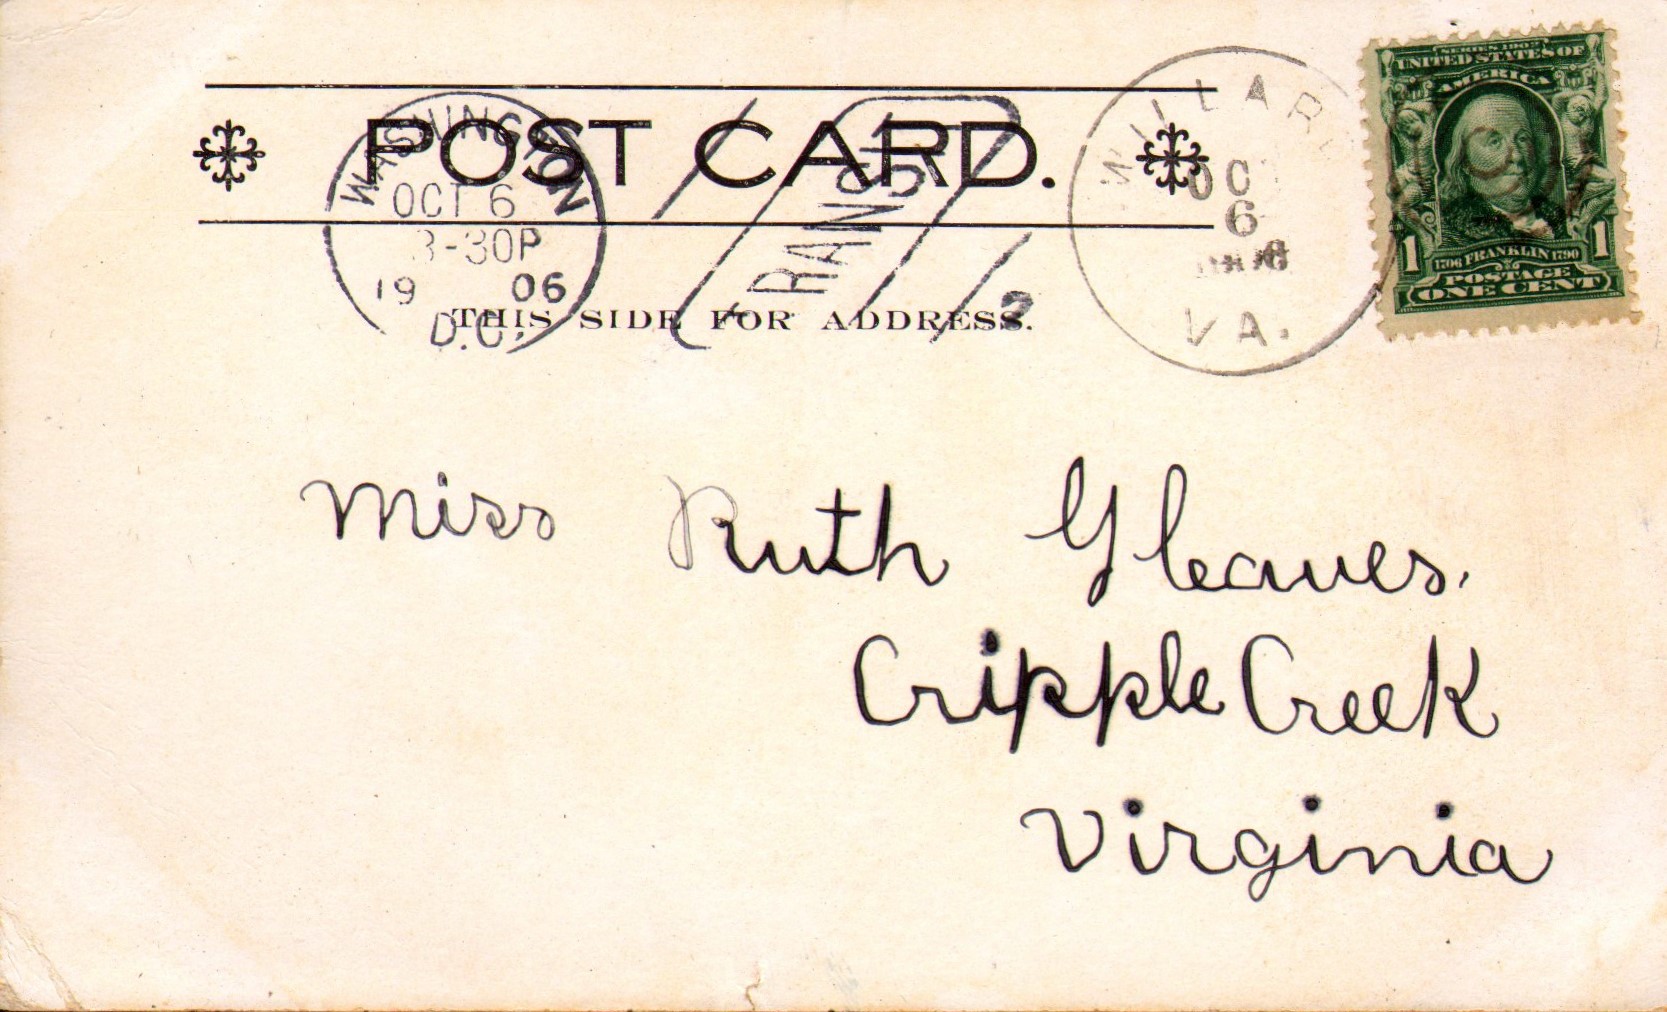 POST CARD.
THIS SIDE FOR ADDRESS.
WASHINGTON
OCT 6
3-30P
19 06
D.C.
TRANSIT
2
WILLARD
OCT
6
1906
VA.
SERIES 1902
UNITED STATES OF
AMERICA
1706 FRANKLIN 1790
1 1
POSTAGE
ONE CENT
Miss Ruth Gleaves.
Cripple Creek
Virginia